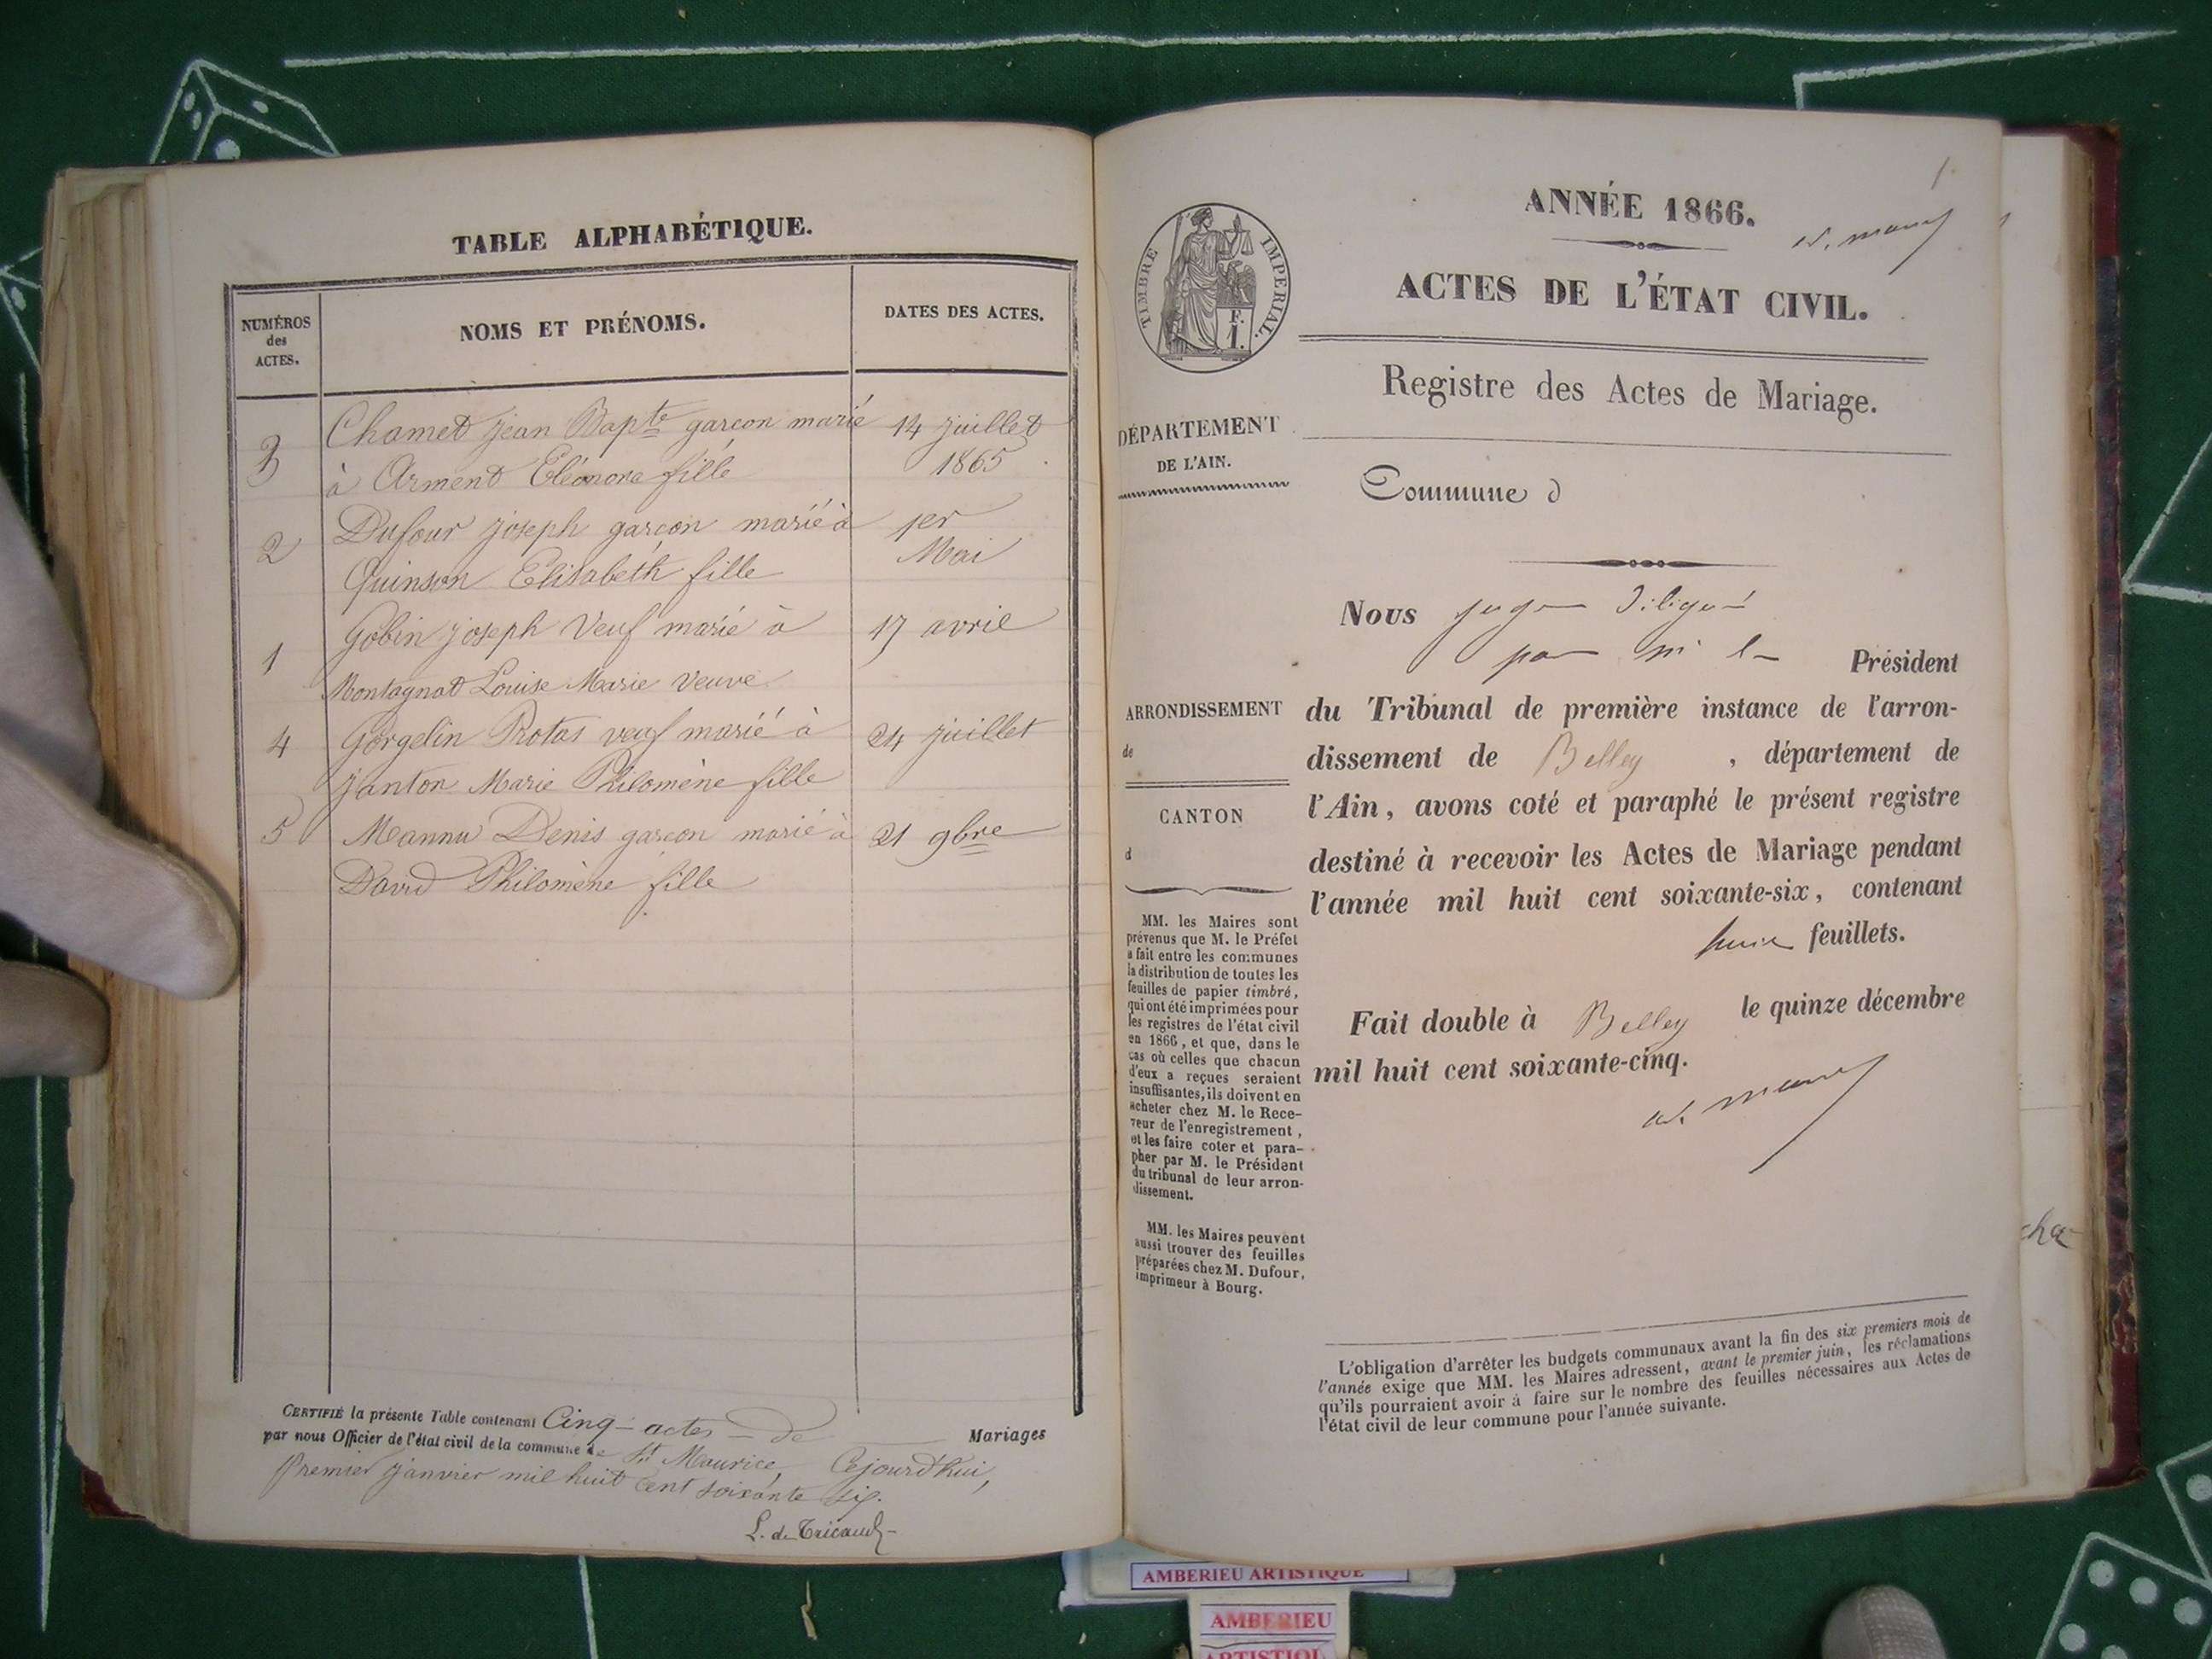 TABLE ALPHABÉTIQUE.
NUMÉROS
des
ACTES.
NOMS ET PRÉNOMS.
DATES DES ACTES.
3 Chamet jean Bapte garcon marié 14 juillet
à Arment Eléonore fille 1865
Dufour joseph garçon marié à 1er
2 Mai
Quinson Elisabeth fille
Gobin joseph Veuf marié à 17 avril
1
Montagnat Louise Marie Veuve
4 Gorgelin Protas veuf marié à 24 juillet
Janton Marie Philomène fille
5 Mannu Denis garcon marié à 21 9bre
David Philomène fille
CERTIFIÉ la présente Table contenant Cinq actes de Mariages
par nous Officier de l'état civil de la commune de St Maurice, Cejourd'hui,
Premier janvier mil huit cent soixante six.
L. de Tricaud
1
ANNÉE 1866.
ACTES DE L'ÉTAT CIVIL.
TIMBRE IMPERIAL.
F.
1.
Registre des Actes de Mariage.
DÉPARTEMENT
DE L'AIN.
Commune d
Nous juge
Président
ARRONDISSEMENT
de
CANTON
d
du Tribunal de première instance de l'arron-
dissement de Belley , département de
l'Ain, avons coté et paraphé le présent registre
destiné à recevoir les Actes de Mariage pendant
l'année mil huit cent soixante-six, contenant
feuillets.
Fait double à Belley le quinze décembre
mil huit cent soixante-cinq.
MM. les Maires sont
prévenus que M. le Préfet
a fait entre les communes
la distribution de toutes les
feuilles de papier timbré,
qui ont été imprimées pour
les registres de l'état civil
en 1866, et que, dans le
cas où celles que chacun
d'eux a reçues seraient
insuffisantes, ils doivent en
acheter chez M. le Rece-
veur de l'enregistrement,
et les faire coter et para-
pher par M. le Président
du tribunal de leur arron-
dissement.
MM. les Maires peuvent
aussi trouver des feuilles
préparées chez M. Dufour,
imprimeur à Bourg.
L'obligation d'arrêter les budgets communaux avant la fin des six premiers mois de
l'année exige que MM. les Maires adressent, avant le premier juin, les réclamations
qu'ils pourraient avoir à faire sur le nombre des feuilles nécessaires aux Actes de
l'état civil de leur commune pour l'année suivante.
AMBERIEU ARTISTIQUE
AMBERIEU